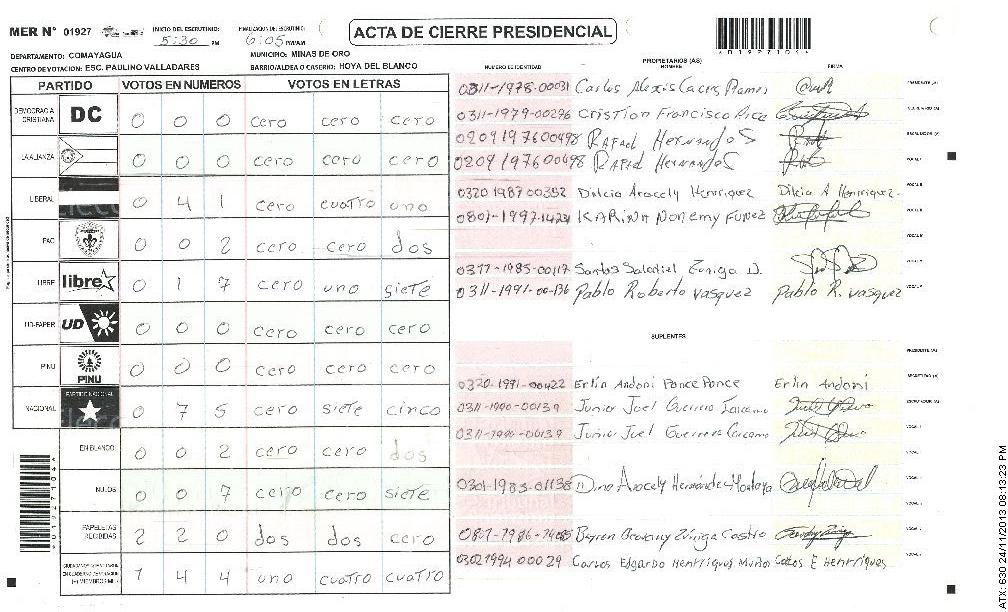 MER N° 01927
INICIO DEL ESCRUTINIO: 5:30 PM
FINALIZACION DE ESCRUTINIO: 6:05 PM/AM
ACTA DE CIERRE PRESIDENCIAL
DEPARTAMENTO: COMAYAGUA
MUNICIPIO: MINAS DE ORO
CENTRO DE VOTACION: ESC. PAULINO VALLADARES
BARRIO/ALDEA O CASERIO: HOYA DEL BLANCO
PARTIDO VOTOS EN NUMEROS VOTOS EN LETRAS
DEMOCRACIA CRISTIANA DC 0 0 0 cero cero cero
LA ALIANZA 0 0 0 cero cero cero
LIBERAL 0 4 1 cero cuatro uno
PAC 0 0 2 cero cero dos
LIBRE libre 0 1 7 cero uno siete
UD-FAPER UD 0 0 0 cero cero cero
PINU PINU 0 0 0 cero cero cero
NACIONAL PARTIDO NACIONAL 0 7 5 cero siete cinco
EN BLANCO 0 0 2 cero cero dos
NULOS 0 0 7 cero cero siete
PAPELETAS RECIBIDAS 2 2 0 dos dos cero
1 4 4 uno cuatro cuatro
NUMERO DE IDENTIDAD
PROPIETARIOS (AS)
NOMBRE
FIRMA
0311-1978-00031 Carlos Alexis Caceres Ramos
0311-1979-00296 Cristian Francisco
0209197600498 RAFAEL HERNANDES
0209197600498 RAFAEL HERNANDES
0320 1987 00352 Dilcia Aracely Henriquez Dilcia A Henriquez
0801-1997-1424 KARINA
0317-1985-00117 Santos Saladiel Zuniga
0311-1991-00-136 Pablo Roberto Vasquez Pablo R. Vasquez
SUPLENTES
0320-1991-00422 Erlin Andoni Ponce Ponce Erlin Andoni
0311-1990-00139 Junior Joel Guerrero Carcamo
0311-1990-00139 Junior Joel Guerrero Carcamo
0301-1983-01138 Aracely Hernández Montoya
Geovany Zúniga Castro
0302 1994 00029 Carlos Edgardo Henriquez Muñoz Carlos E Henriquez
ATX: 630 24/11/2013 08:13:23 PM